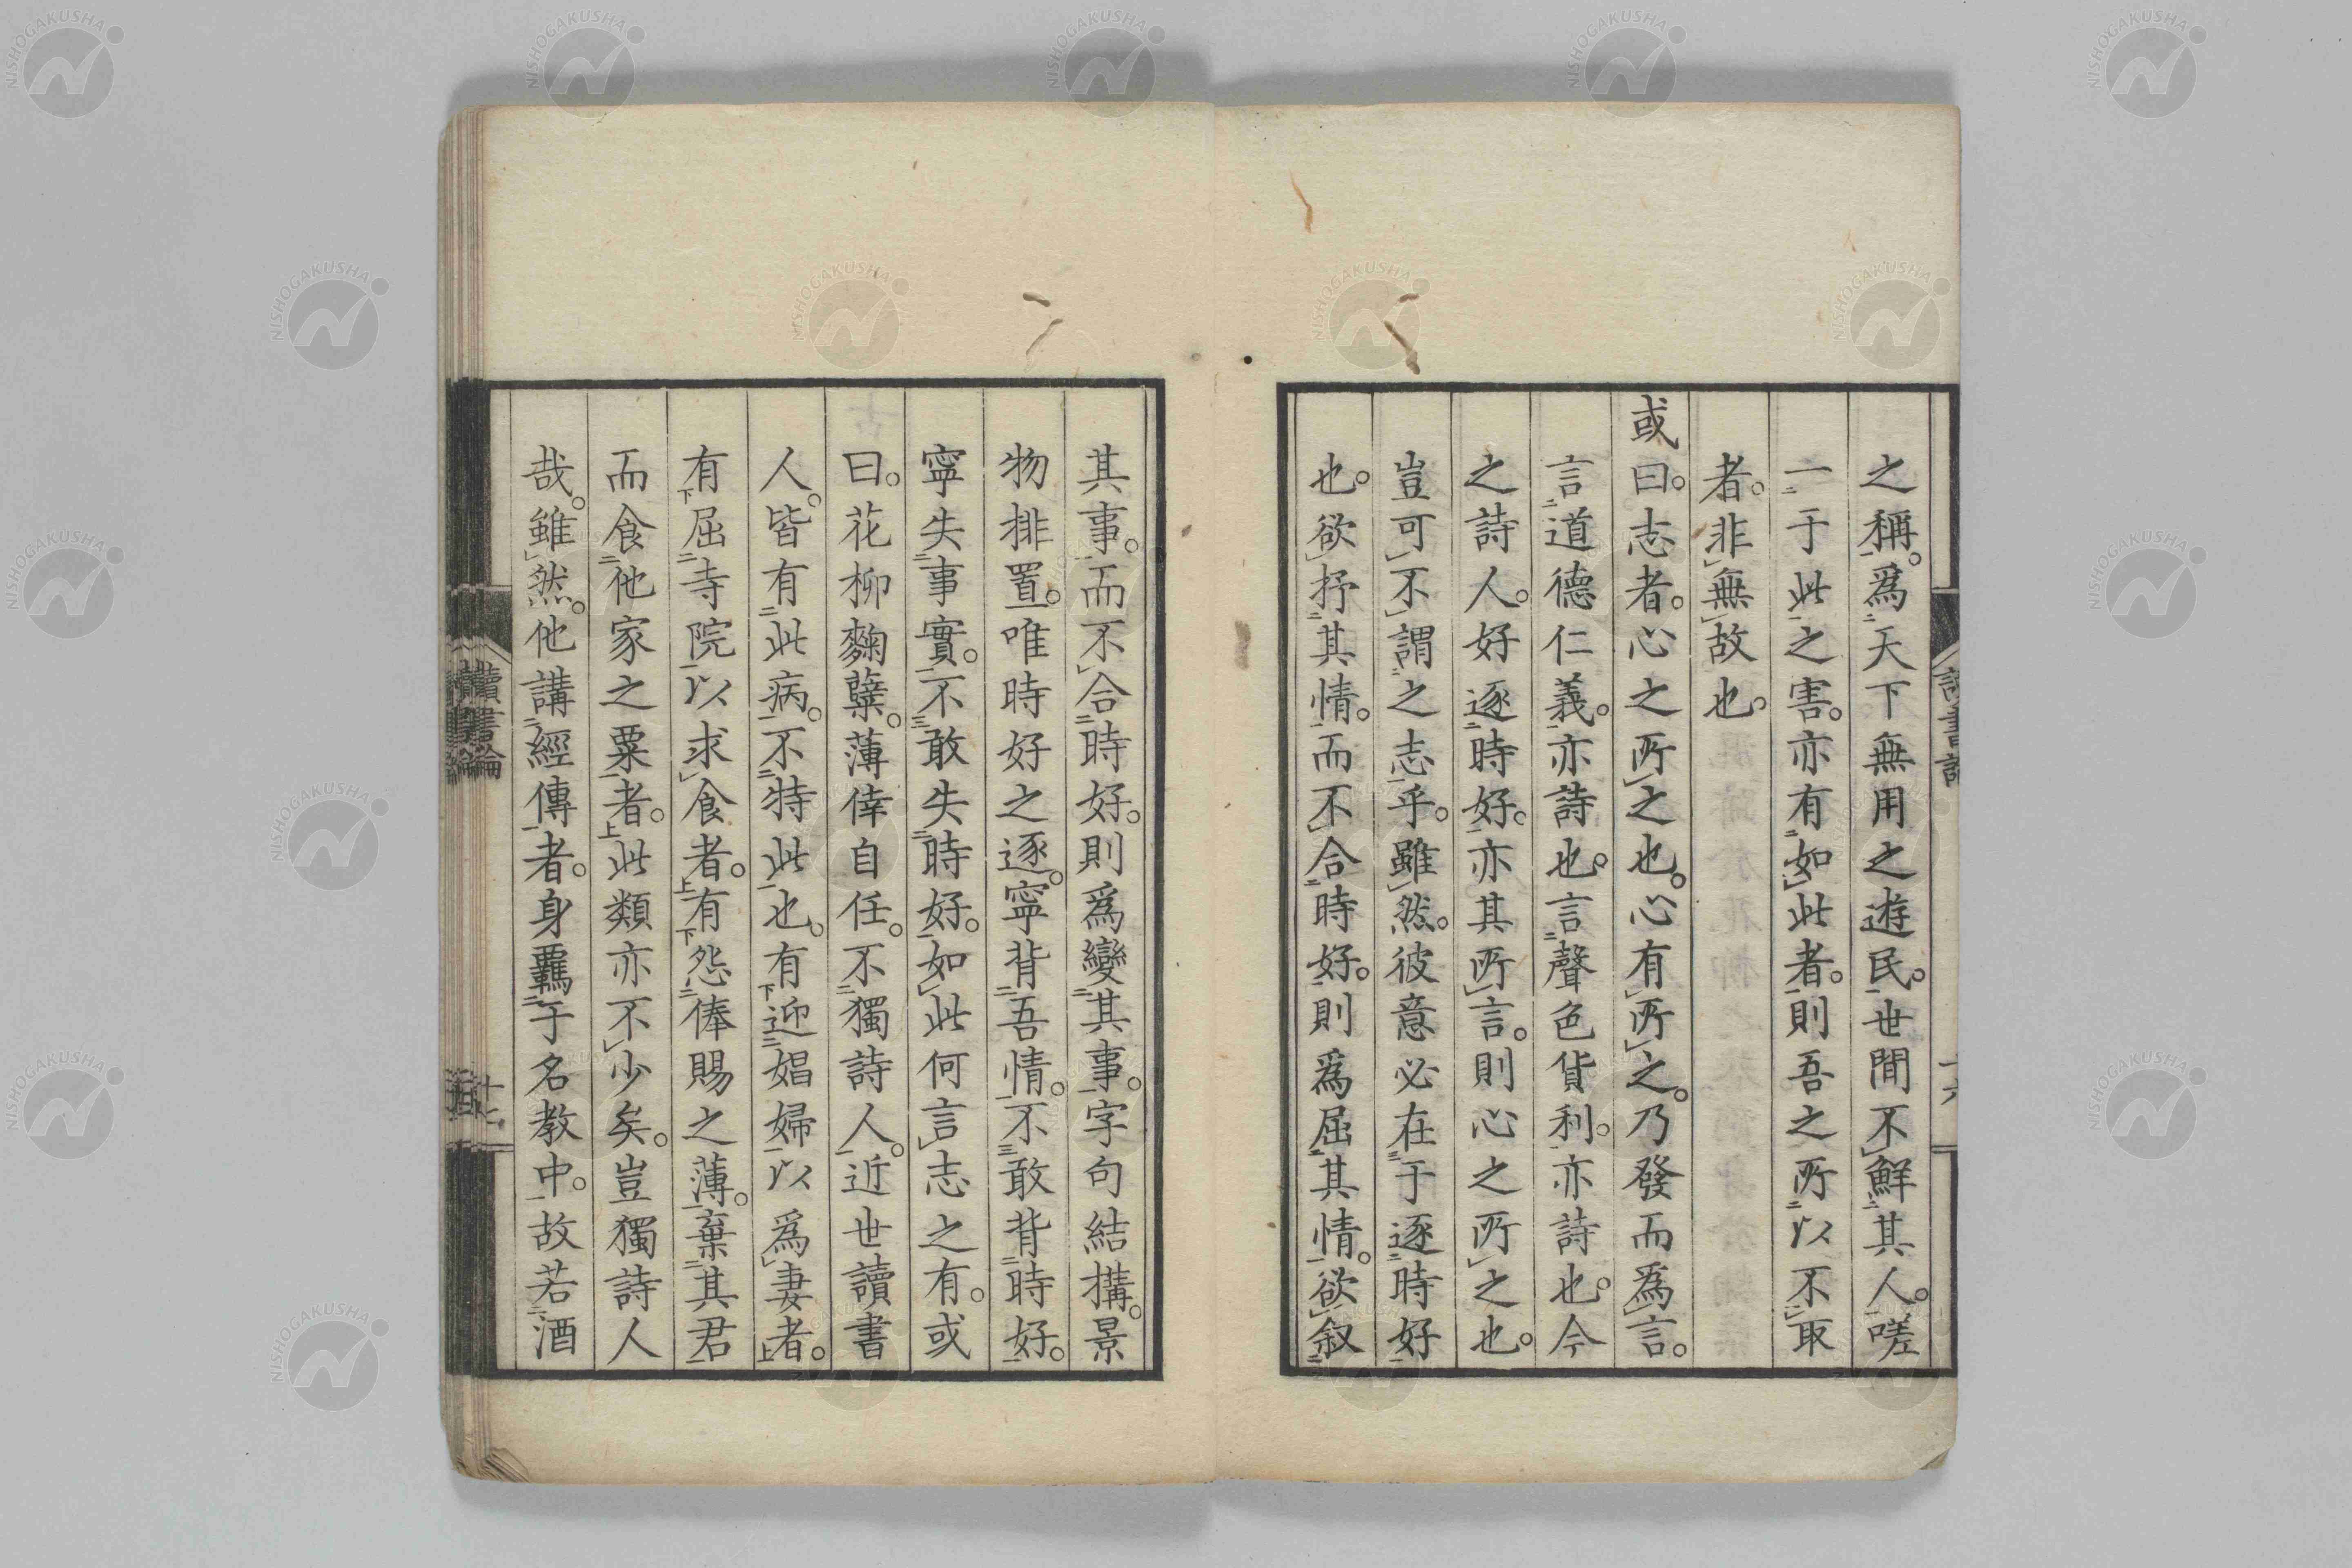 之稱。爲天下無用之遊民。世間不鮮其人。嗟
一于此之害。亦有如此者。則吾之所以不取
者。非無故也。
或曰。志者。心之所之也。心有所之。乃發而爲言。
言道德仁義。亦詩也。言聲色貨利。亦詩也。今
之詩人。好逐時好。亦其所言。則心之所之也。
豈可不謂之志乎。雖然。彼意必在于逐時好
也。欲抒其情。而不合時好。則爲屈其情。欲叙
其事。而不合時好。則爲變其事。字句結搆。景
物排置。唯時好之逐。寧背吾情。不敢背時好。
寧失事實。不敢失時好。如此何言志之有。或
曰。花柳麴蘖。薄倖自任。不獨詩人。近世讀書
人。皆有此病。不特此也。有迎娼婦以爲妻者。
有屈寺院以求食者。有怨俸賜之薄。棄其君
而食他家之粟者。此類亦不少矣。豈獨詩人
哉。雖然。他講經傳者。身羈于名教中。故若酒
讀書論
十七
NISHOGAKUSHA